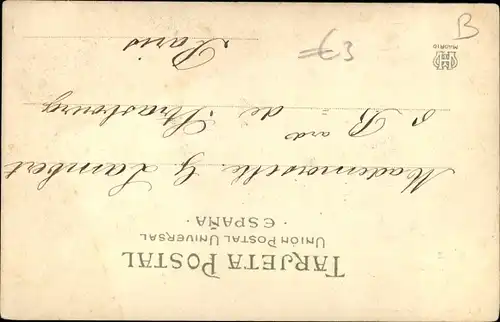 TARJETA POSTAL
UNIÓN POSTAL UNIVERSAL
· ESPAÑA ·
Mademoiselle G Lambert
8 Bard de Strasbourg
Paris
MADRID
€3
B